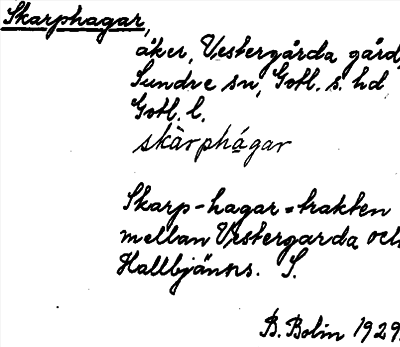 Skarphagar,
åker, Vestergårda gård,
Sundre sn, Gotl. s. hd
Gotl. l.
skàrphágar
Skarp-hagar = trakten
mellan Vestergarda och
Hallbjänns. S.
B. Bolin 1929.